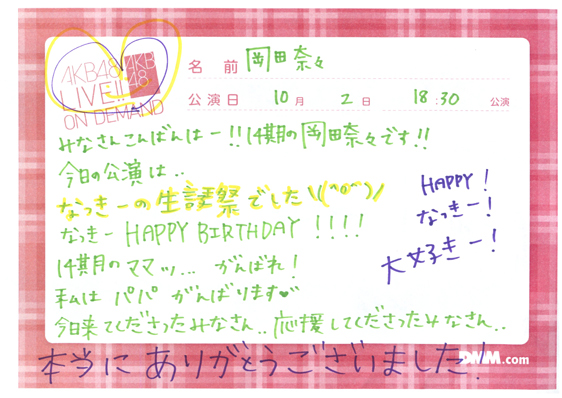 AKB48
LIVE!!
ON DEMAND
AKB
48
名前 岡田奈々
公演日 10月 2日 18:30 公演
みなさんこんばんはー!!14期の岡田奈々です!!
今日の公演は..
なっきーの生誕祭でした\(^o^)/
なっきー HAPPY BIRTHDAY!!!!
14期のママッ... がんばれ!
私は パパ がんばります♥
今日来てくださったみなさん..応援してくださったみなさん..
本当にありがとうございました!
HAPPY!
なっきー!
大好きー!
DMM.com